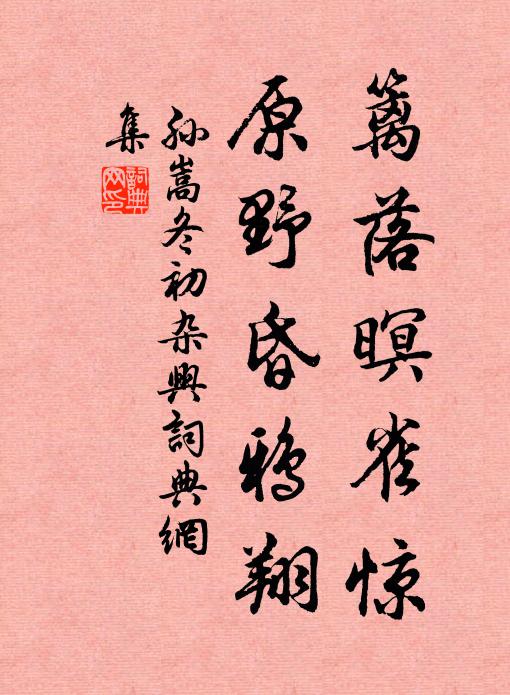 篱落暝雀惊
原野昏鸦翔
孙嵩冬初杂興詞典網
集
詞典网印